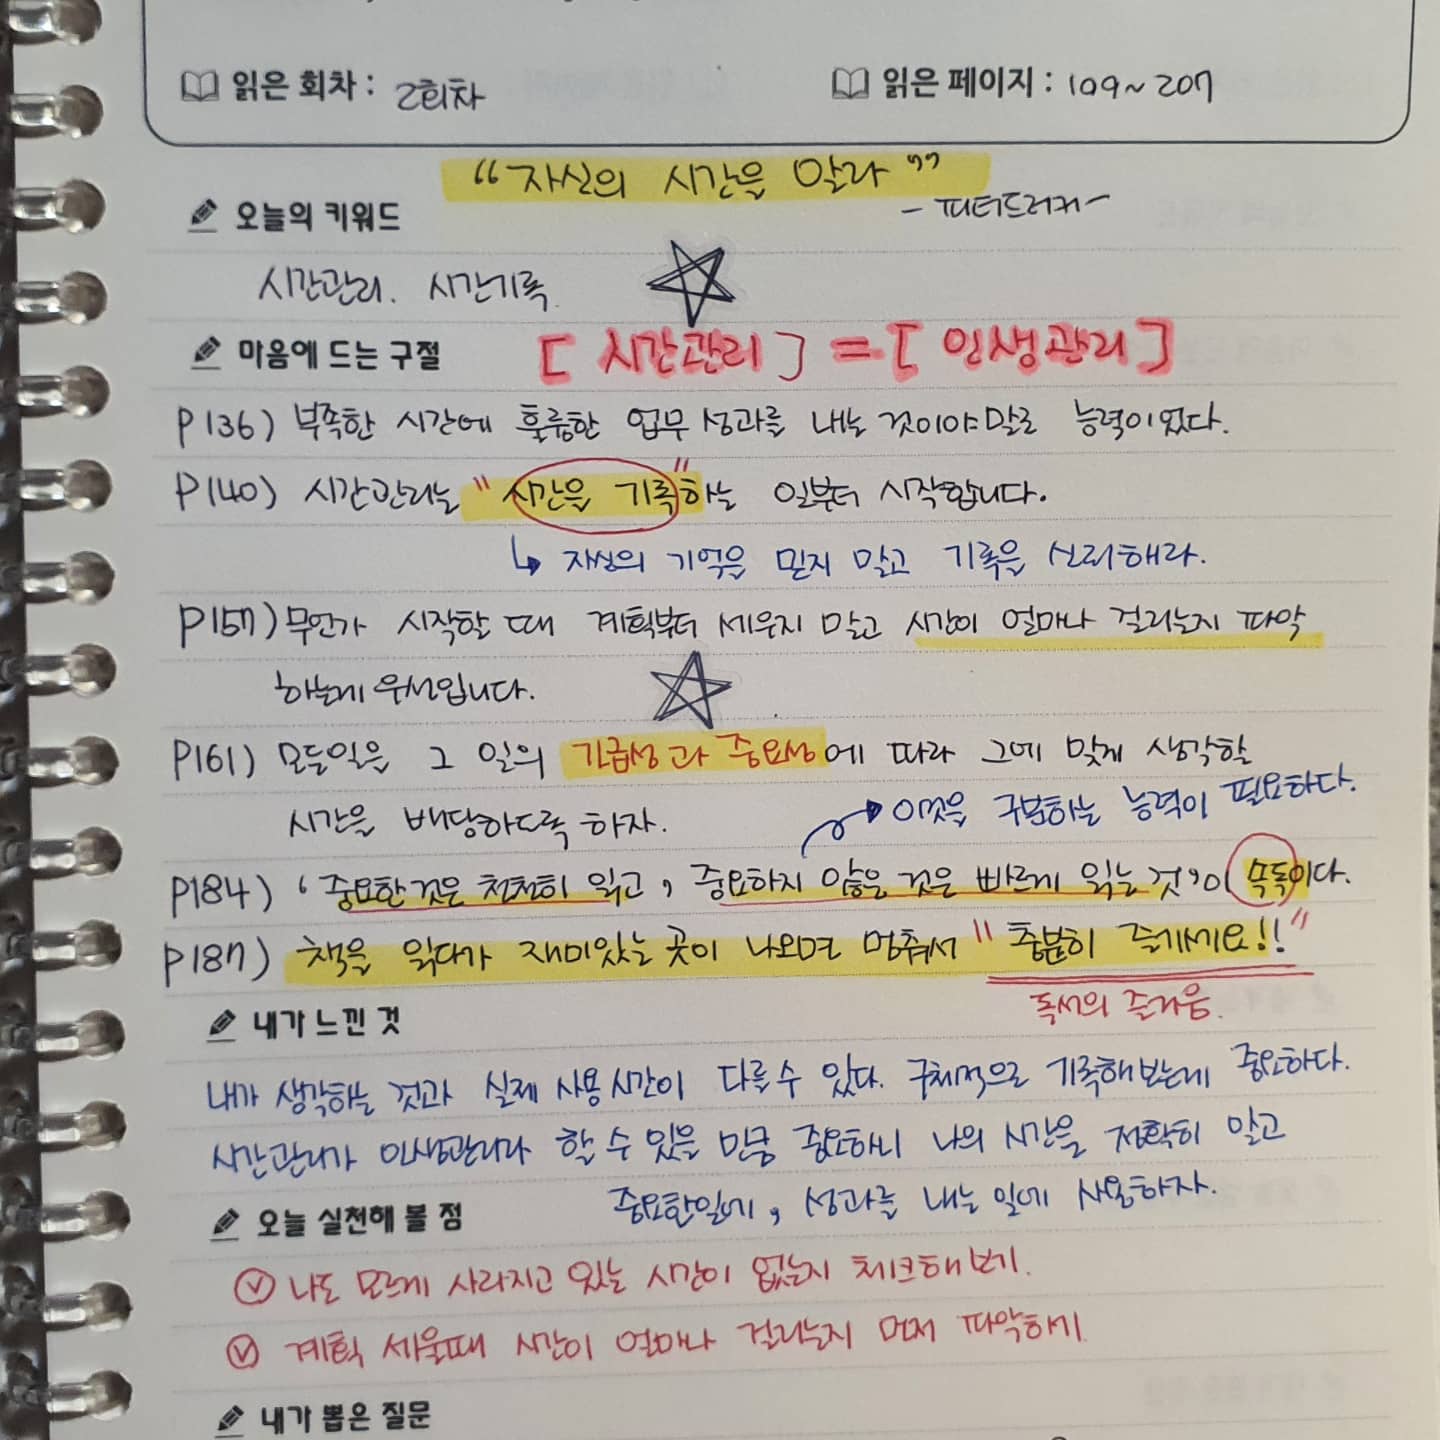 읽은 회차 : 2회차
읽은 페이지 : 109~207
"자신의 시간을 알라"
- 피터드러커 -
오늘의 키워드
시간관리. 시간기록.
마음에 드는 구절
[시간관리] = [인생관리]
P136) 부족한 시간에 훌륭한 업무 성과를 내는 것이야말로 능력이있다.
P140) 시간관리는 "시간을 기록"하는 일부터 시작합니다.
↳ 자신의 기억을 믿지 말고 기록을 신뢰해라.
P157) 무언가 시작할 때 계획부터 세우지 말고 시간이 얼마나 걸리는지 파악
하는게 우선입니다.
P161) 모든일은 그 일의 긴급성과 중요성에 따라 그에 맞게 생각할
시간을 배당하도록 하자.
이것을 구분하는 능력이 필요하다.
P184) '중요한것은 천천히 읽고, 중요하지 않은 것은 빠르게 읽는 것'이 속독이다.
P187) 책을 읽다가 재미있는 곳이 나오면 멈춰서 "충분히 즐기세요!!"
독서의 즐거움.
내가 느낀 것
내가 생각하는 것과 실제 사용시간이 다를수 있다. 구체적으로 기록해보는게 중요하다.
시간관리가 인생관리라 할 수 있을 만큼 중요하니 나의 시간을 정확히 알고
중요한일에, 성과를 내는 일에 사용하자.
오늘 실천해 볼 점
나도 모르게 사라지고 있는 시간이 없는지 체크해보기.
계획 세울때 시간이 얼마나 걸리는지 먼저 파악하기.
내가 뽑은 질문